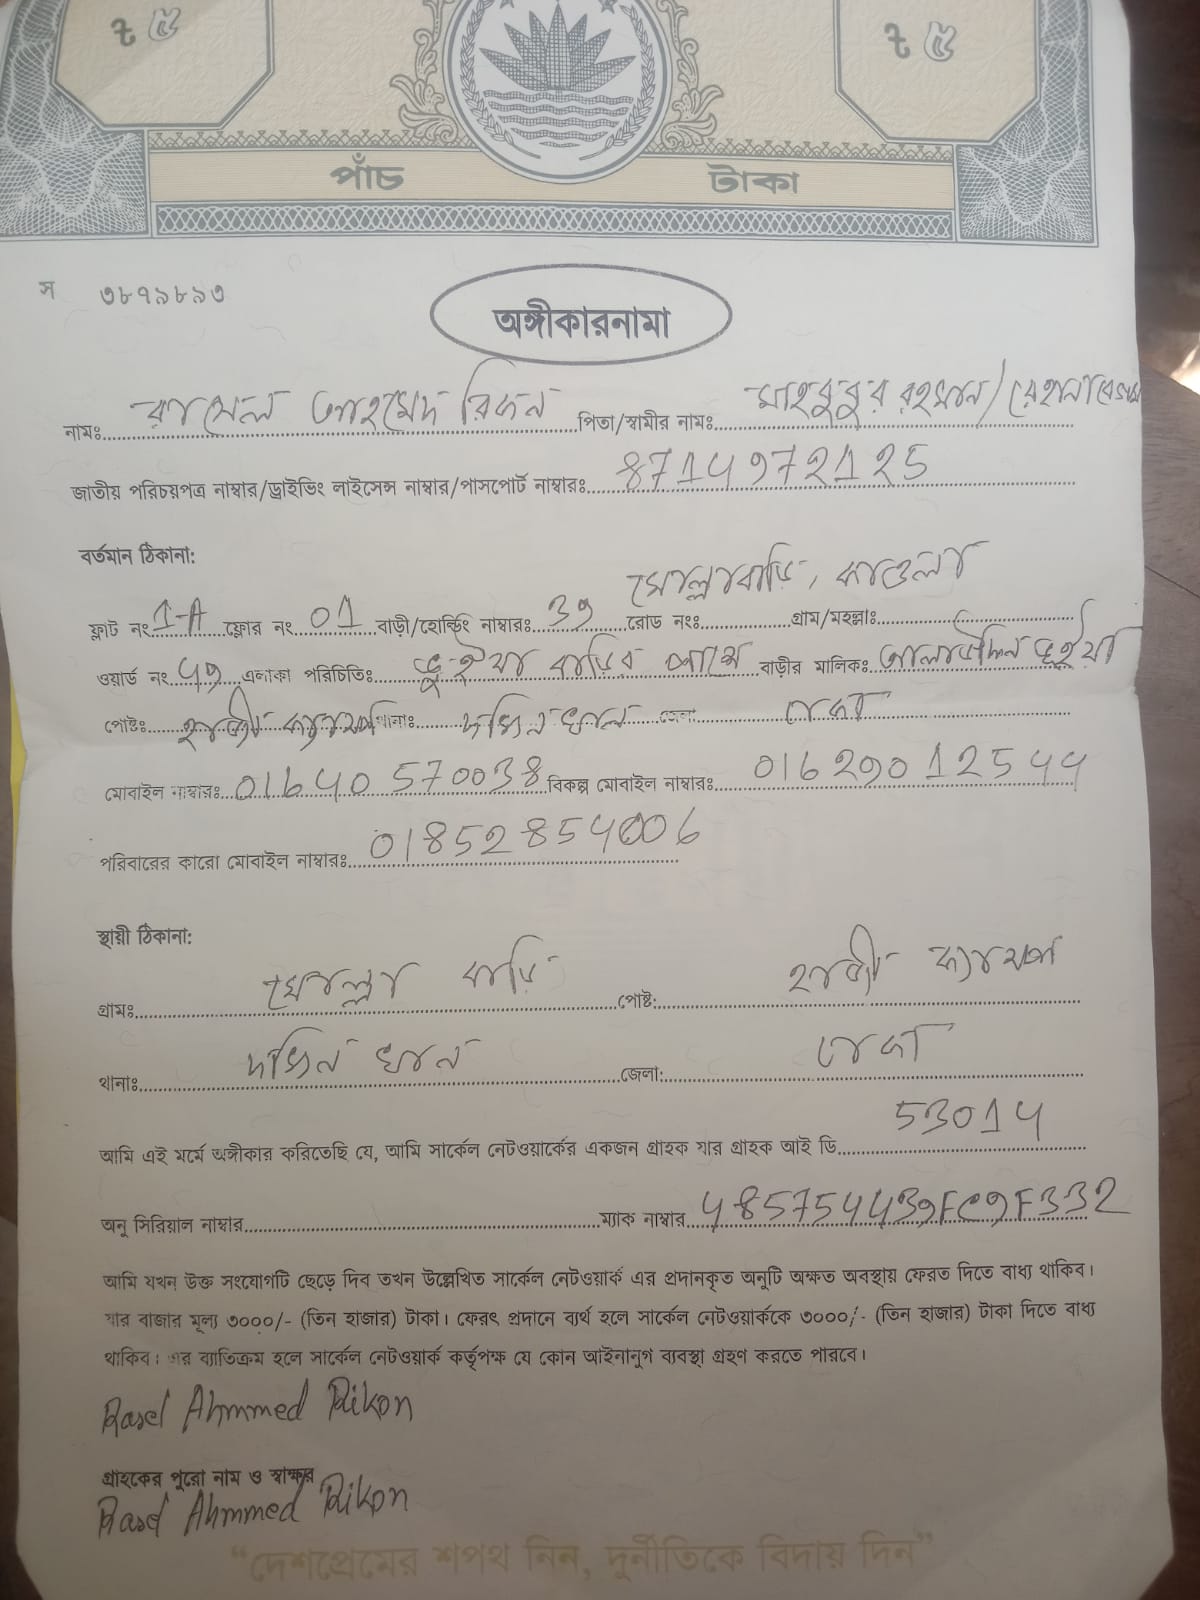 ৳ ৫ ৳ ৫
পাঁচ টাকা
স ৩৮৭৯৮৯৩
অঙ্গীকারনামা
নামঃ রাসেল আহমেদ রিকন পিতা/স্বামীর নামঃ মাহবুবুর রহমান/রেহানা বেগম
জাতীয় পরিচয়পত্র নাম্বার/ড্রাইভিং লাইসেন্স নাম্বার/পাসপোর্ট নাম্বারঃ 8714972125
বর্তমান ঠিকানা:
ফ্লাট নং 1-A ফ্লোর নং 01 বাড়ী/হোল্ডিং নাম্বারঃ 39 রোড নংঃ মোল্লাবাড়ি, কাওলা গ্রাম/মহল্লাঃ
ওয়ার্ড নং 49 এলাকা পরিচিতিঃ ভূইয়া বাড়ির পাশে বাড়ীর মালিকঃ আলাউদ্দিন ভূইয়া
পোষ্টঃ হাজী ক্যাম্প থানাঃ দক্ষিন খান জেলাঃ ঢাকা
মোবাইল নাম্বারঃ 01640570038 বিকল্প মোবাইল নাম্বারঃ 01629012544
পরিবারের কারো মোবাইল নাম্বারঃ 01852854006
স্থায়ী ঠিকানা:
গ্রামঃ মোল্লা বাড়ি পোষ্ট: হাজী ক্যাম্প
থানাঃ দক্ষিন খান জেলা: ঢাকা
আমি এই মর্মে অঙ্গীকার করিতেছি যে, আমি সার্কেল নেটওয়ার্কের একজন গ্রাহক যার গ্রাহক আই ডি 53014
অনু সিরিয়াল নাম্বার ম্যাক নাম্বার 485754439FC9F332
আমি যখন উক্ত সংযোগটি ছেড়ে দিব তখন উল্লেখিত সার্কেল নেটওয়ার্ক এর প্রদানকৃত অনুটি অক্ষত অবস্থায় ফেরত দিতে বাধ্য থাকিব।
যার বাজার মূল্য ৩০০০/- (তিন হাজার) টাকা। ফেরৎ প্রদানে ব্যর্থ হলে সার্কেল নেটওয়ার্ককে ৩০০০/- (তিন হাজার) টাকা দিতে বাধ্য
থাকিব। এর ব্যাতিক্রম হলে সার্কেল নেটওয়ার্ক কর্তৃপক্ষ যে কোন আইনানুগ ব্যবস্থা গ্রহণ করতে পারবে।
Rasel Ahmmed Rikon
গ্রাহকের পুরো নাম ও স্বাক্ষর
Rasel Ahmmed Rikon
“দেশপ্রেমের শপথ নিন, দুর্নীতিকে বিদায় দিন”